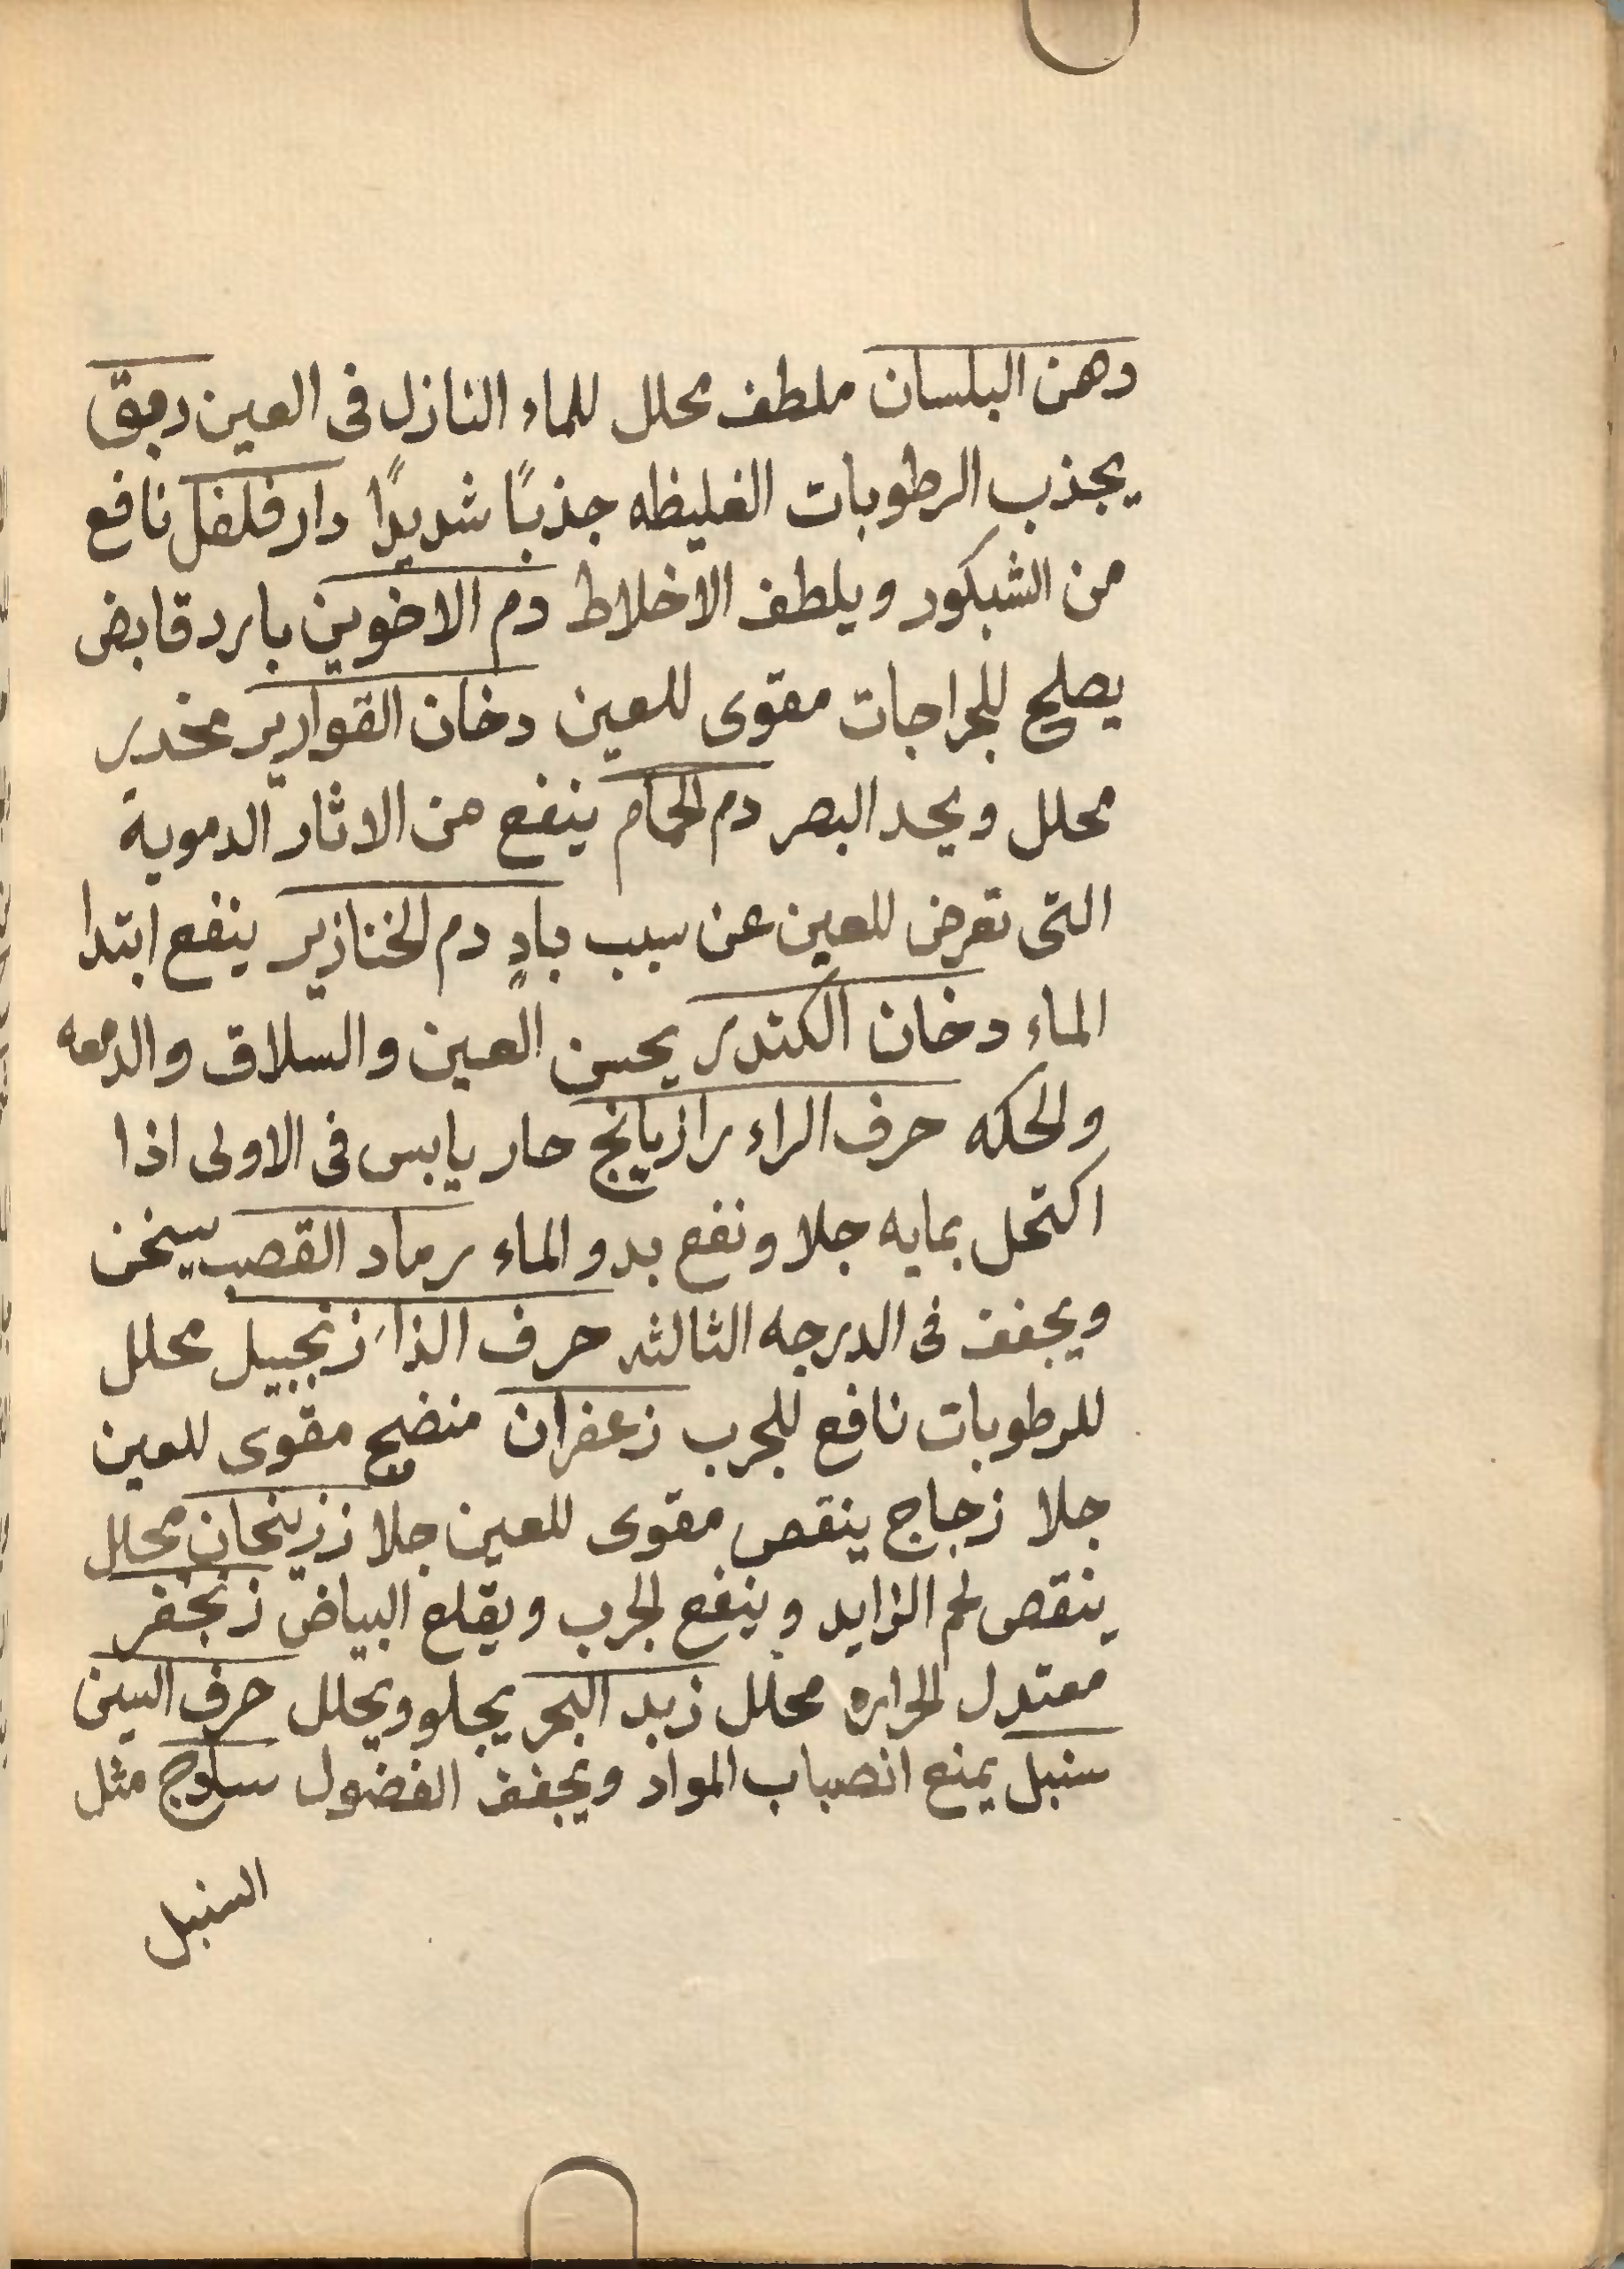 دهن البلسان ملطف محلل للماء النازل فى العين دبق
يجذب الرطوبات الغليظه جذبًا شديدًا دار فلفل نافع
من الشبكور ويلطف الاخلاط دم الاخوين بارد قابض
يصلح للجراجات مقوى للعين دخان القوارير مخدر
محلل ويحد البصر دم الحمام ينفع من الاثار الدموية
التى تعرض للعين عن سبب بادٍ دم الخنازير ينفع ابتدا
الماء دخان الكندر يحسن العين والسلاق والدمعه
والحكه حرف الراء رازيانج حار يابس فى الاولى اذا
اكتحل بمايه جلا ونفع بدو الماء رماد القصب يسخن
ويجفف فى الدرجه الثالثه حرف الذاء زنجبيل محلل
للرطوبات نافع للجرب زعفران منضج مقوى للعين
جلا زجاج ينقص مقوى للعين جلا محلل
ينقص لحم الزايد وينفع الجرب ويقلع البياض زنجفر
معتدل الحراره محلل زبد البحر يجلو ويحلل حرف السين
سنبل يمنع انصباب المواد ويجفف الفضول سادج مثل
السنبل